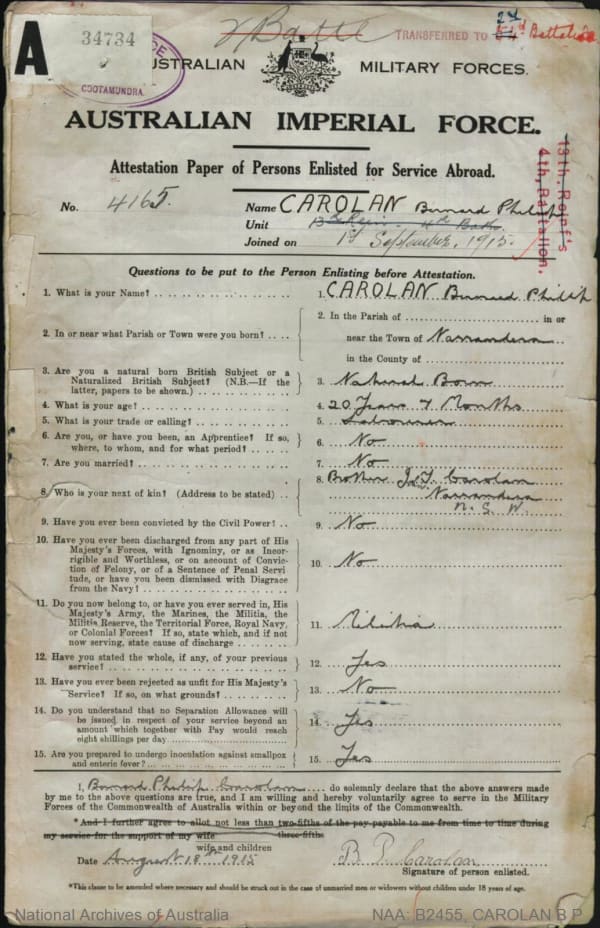 A
34734
COOTAMUNDRA.
TRANSFERRED TO 2nd Battalion
AUSTRALIAN MILITARY FORCES.
AUSTRALIAN IMPERIAL FORCE.
Attestation Paper of Persons Enlisted for Service Abroad.
13th. Reinf's
4th. Battalion.
No. 4165.
Name CAROLAN Bernard Philip
Unit 13th Rein. 4th Battn.
Joined on 1st September, 1915.
Questions to be put to the Person Enlisting before Attestation.
1. What is your Name? 1. CAROLAN Bernard Philip
2. In or near what Parish or Town were you born? 2. In the Parish of in or
near the Town of Narrandera
in the County of
3. Are you a natural born British Subject or a
Naturalized British Subject? (N.B.—If the 3. Natural Born
latter, papers to be shown.)
4. What is your age? 4. 20 Years 7 Months
5. What is your trade or calling? 5. Labourer
6. Are you, or have you been, an Apprentice? If so, 6. No
where, to whom, and for what period?
7. Are you married? 7. No
8. Who is your next of kin? (Address to be stated) 8. Brother Carolan
Narrandera
N. S. W.
9. Have you ever been convicted by the Civil Power? 9. No
10. Have you ever been discharged from any part of His
Majesty's Forces, with Ignominy, or as Incor-
rigible and Worthless, or on account of Convic-
tion of Felony, or of a Sentence of Penal Servi 10. No
tude, or have you been dismissed with Disgrace
from the Navy?
11. Do you now belong to, or have you ever served in, His
Majesty's Army, the Marines, the Militia, the
Militia Reserve, the Territorial Force, Royal Navy, 11. Militia
or Colonial Forces? If so, state which, and if not
now serving, state cause of discharge
12. Have you stated the whole, if any, of your previous
service? 12. Yes
13. Have you ever been rejected as unfit for His Majesty's
Service? If so, on what grounds? 13. No
14. Do you understand that no Separation Allowance will
be issued in respect of your service beyond an 14. Yes
amount which together with Pay would reach
eight shillings per day
15. Are you prepared to undergo inoculation against smallpox
and enteric fever? 15. Yes
I, Bernard Philip Carolan do solemnly declare that the above answers made
by me to the above questions are true, and I am willing and hereby voluntarily agree to serve in the Military
Forces of the Commonwealth of Australia within or beyond the limits of the Commonwealth.
*And I further agree to allot not less than two-fifths of the pay payable to me from time to time during
my service for the support of my wife three-fifths
wife and children
Date August 18th 1915 B P Carolan
Signature of person enlisted.
*This clause to be amended where necessary and should be struck out in the case of unmarried men or widowers without children under 18 years of age.
National Archives of Australia NAA: B2455, CAROLAN B P